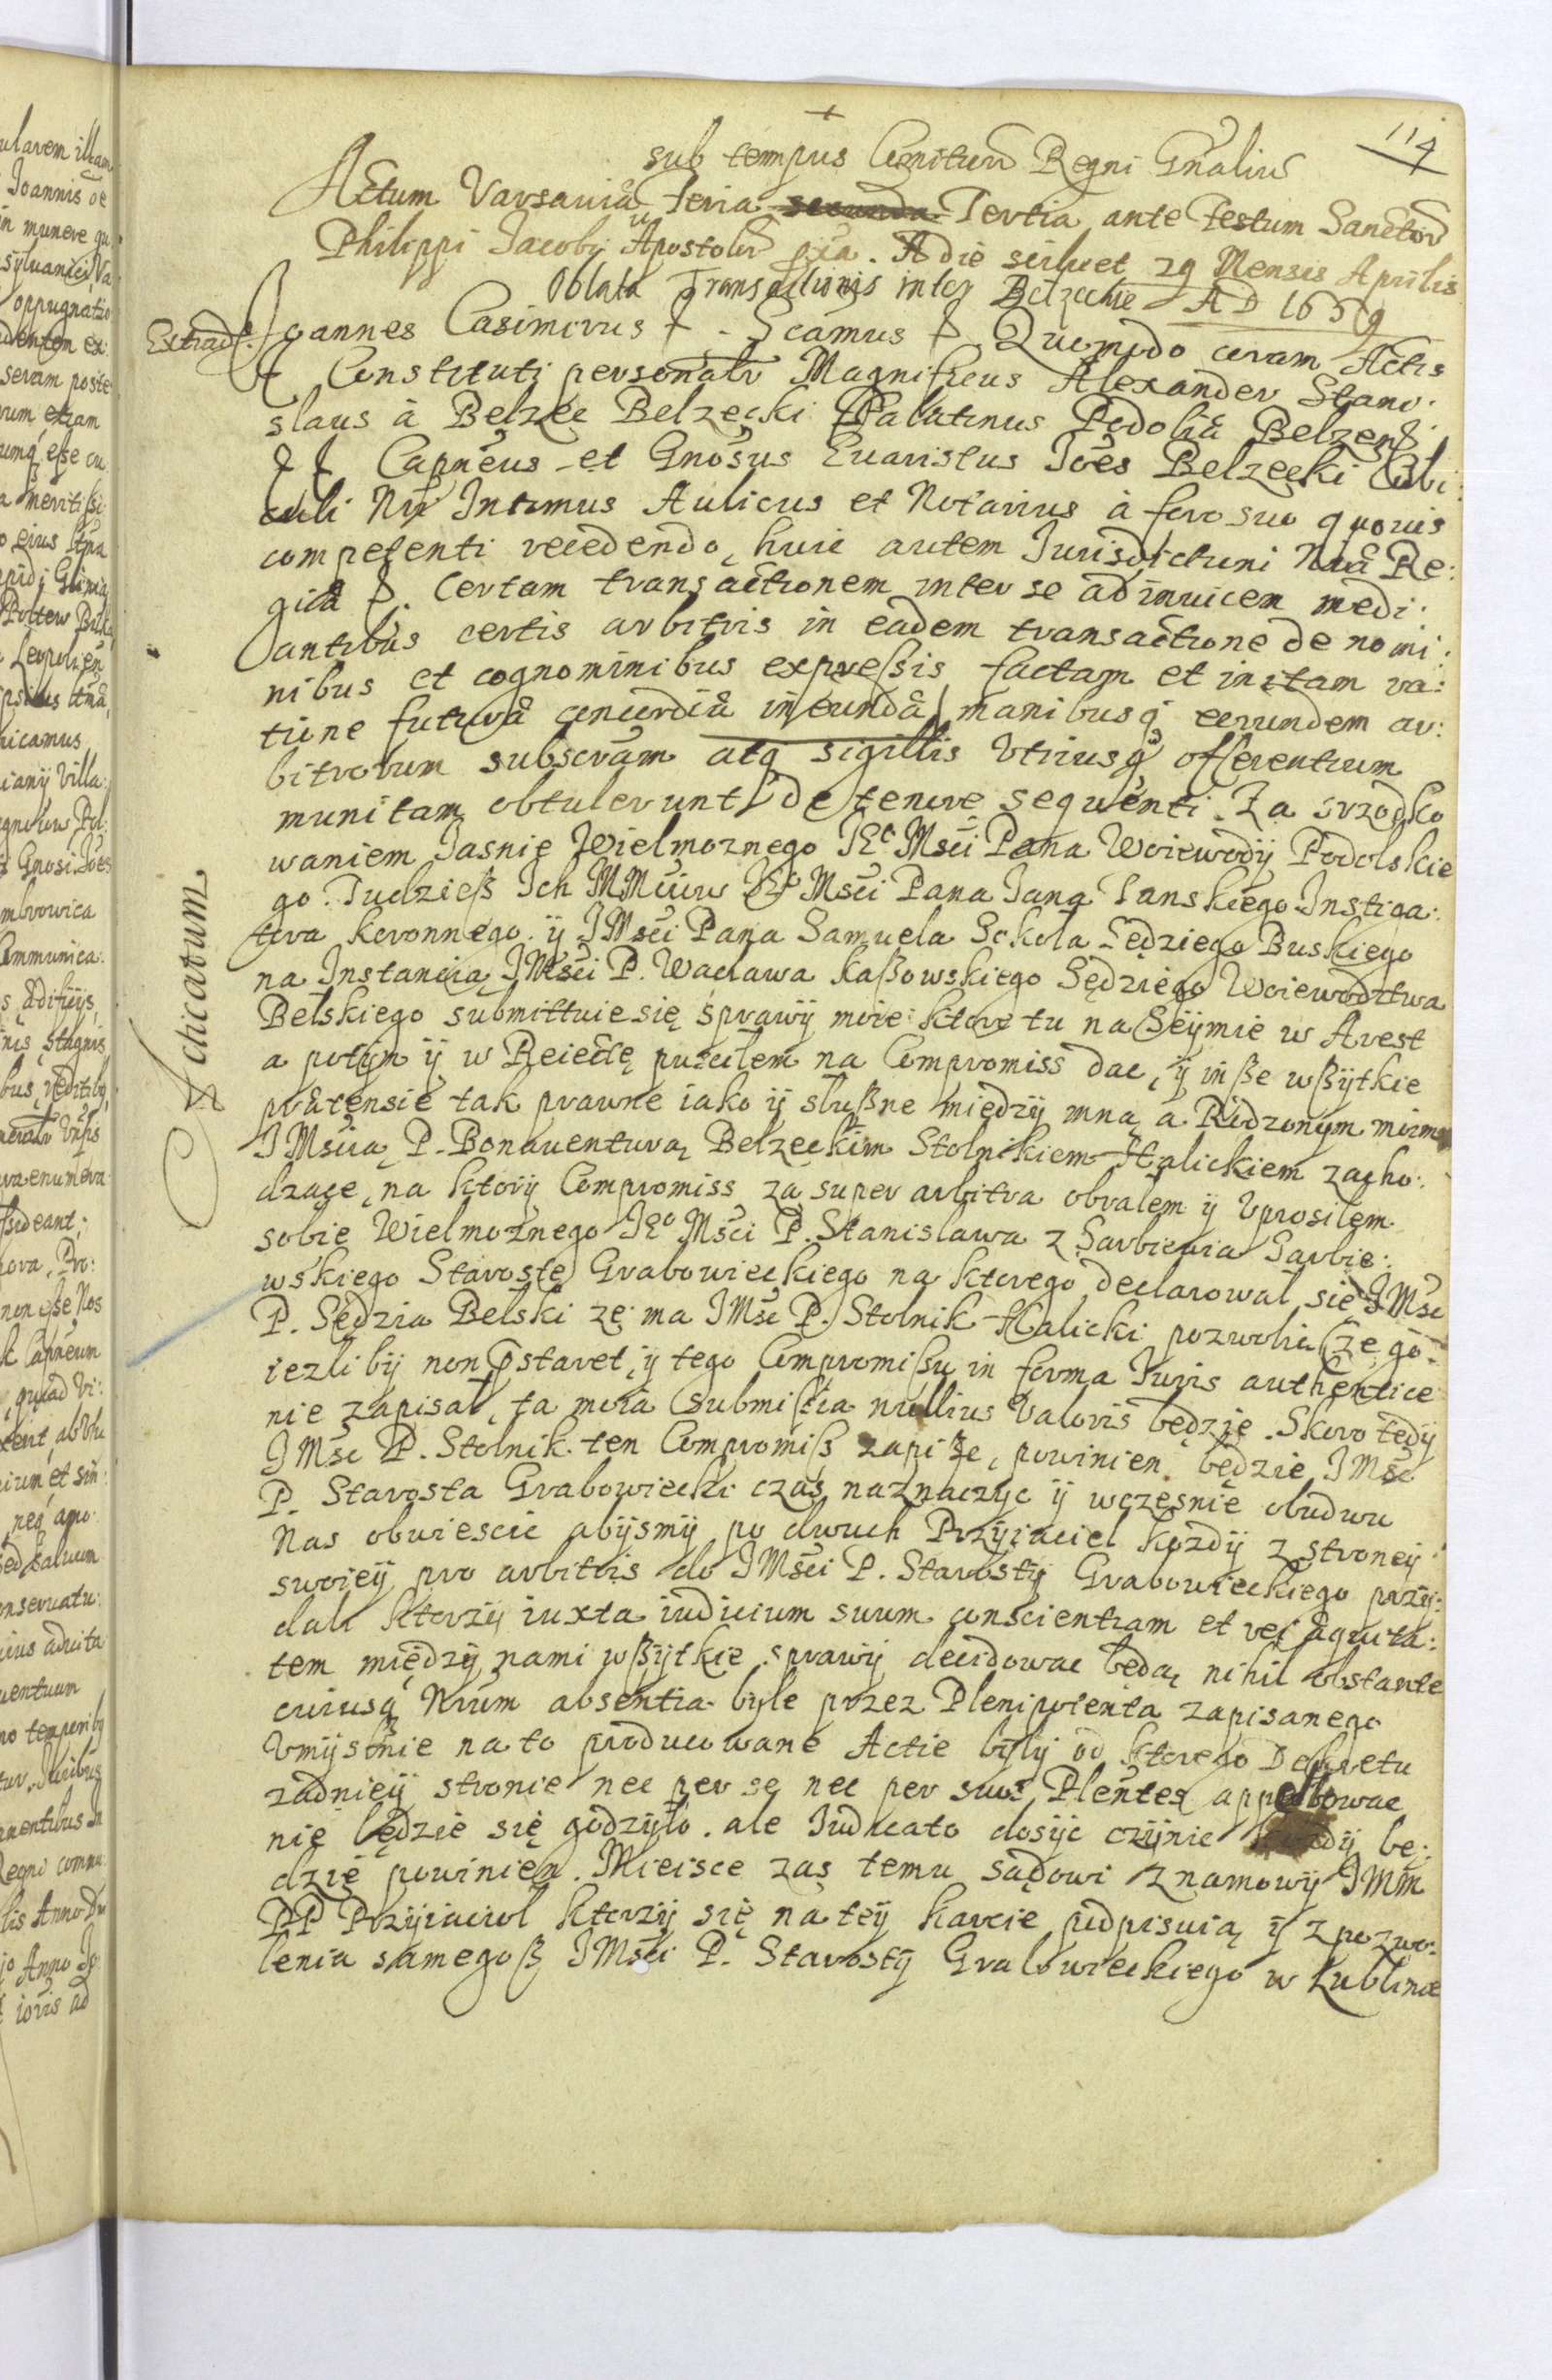 114
sub tempus Comitiorū Regni Gn̄aliū
Actum Varsaviæ feria secunda Tertia ante Festum Sanctorū
Philippi Jacobi Apostolorū px̄ia. A die scilicet 29 Mensis Aprilis
Oblata Transactionis inter Belzeckie AD 1659
Extrad:
Joannes Casimirus & Scamus & Quomodo coram Actis
& Constituti personalr Magnificus Alexander Stani:
slaus à Belzec Belzecki Palatinus Podoliæ Belzens:
& & Capneus et Gnosus Evaristus Joes Belzecki Cubi:
culi Nri Intimus Aulicus et Notarius à foro suo quovis
competenti recedendo, huic autem Jurisdictioni Nræ Re:
giæ &. Certam transactionem inter se ad invicem medi:
antibus certis arbitris in eadem transactione de nomi:
nibus et cognominibus expreßis factam et initam ra:
tione futuræ concordiæ ineundæ manibusq eorundem ar:
bitrorum subscram atq sigillis Utriusq offerentium
munitam obtulerunt de tenore sequenti. Za srzodko
waniem Jasnie Wielmoznego JEo Msci Pana Woiewody Podolskie
go. Tudzieß Ich MMciow JEo Msci Pana Jana Tanskiego Instiga:
tora koronnego ÿ JMsci Pana Samuela Sokola Sędziego Buskiego
na Instancią JMsci P. Waclawa kaßowskiego Sędziego Woiewodztwa
Belskiego submittuie się sprawÿ moie ktore tu na Seÿmie w Arest
a potÿm ÿ w Reiectę puscilem na Compromiss dac, ÿ inße wßÿtkie
prætensie tak prawne iako ÿ slußne międzÿ mną a Rodzonÿm moim
JMscią P. Bonaventurą Belzeckim Stolnikiem Halickiem zacho:
dzące, na ktorÿ Compromiss za super arbitra obralem ÿ uprosilem
sobie Wielmoznego JEo Msci P. Stanislawa z Sarbiewia Sarbie:
wskiego Starostę Grabowieckiego na ktorego declarowal się JMsc
P. Sędzia Belski ze ma JMsc P. Stolnik Halicki pozwolic ze go
iezlibÿ non pstaret, ÿ tego Compromißu in forma Juris authentice
nie zapisal, ta moia Submißia nullius Valoris będzie. Skoro tedÿ
JMsc P. Stolnik ten Compromiß zapiße, powinien będzie JMsc
P. Starosta Grabowiecki czas naznaczÿc ÿ wczesnie obudwu
Nas obwiescic abÿsmÿ po dwuch Przÿiaciel kozdÿ z stroneÿ
swoieÿ pro arbitris do JMsci P. Starostÿ Grabowieckiego przÿ:
dali ktorzÿ iuxta iudicium suum conscientiam et rei æquita:
tem międzÿ nami wßÿtkie sprawÿ decidowac będą nihil obstante
cuiusq Nrum absentia bÿle przez Plenipotenta zapisanego
Vmÿslnie na to producowane Actie bÿlÿ od ktorego Dekretu
zadnieÿ stronie nec per se nec per suos Plentes appellowac
nie będzie się godzÿlo. ale Iudicato dosÿc czÿnic be:
dzie powinien. Mieisce zas temu sądowi z namowÿ JMM
PP Przÿiaciol ktorzÿ się na teÿ karcie podpisuią ÿ z pozwo:
lenia samegoß JMsci P. Starostÿ Grabowieckiego w Lublinie